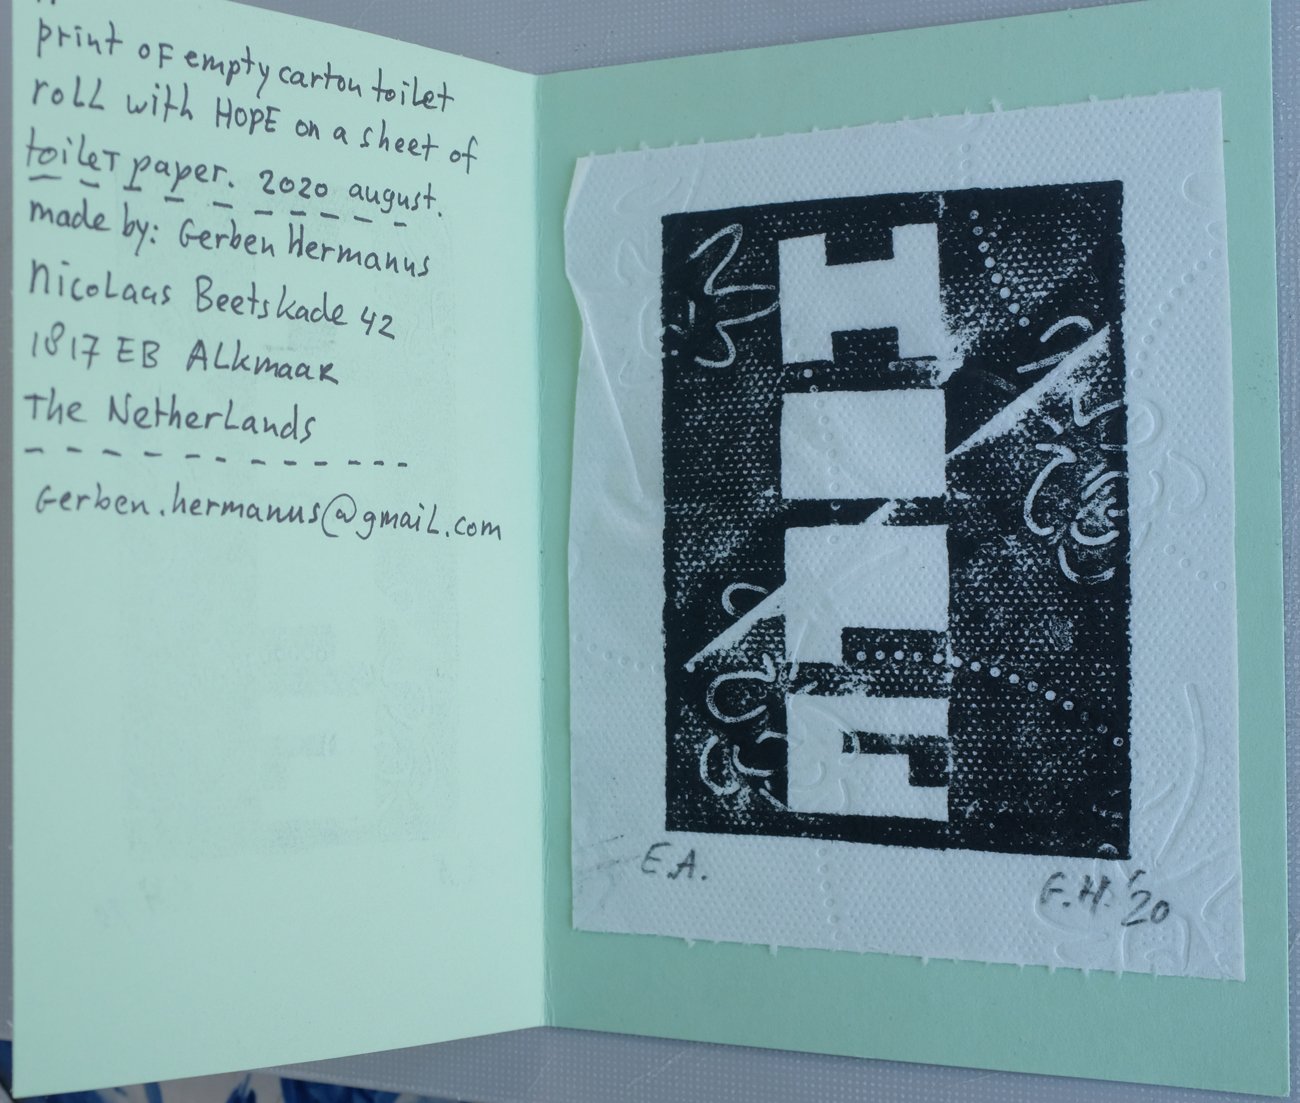 print of empty carton toilet
roll with HOPE on a sheet of
toilet paper. 2020 august.
made by: Gerben Hermanus
Nicolaas Beetskade 42
1817 EB Alkmaar
The Netherlands
Gerben.hermanus@gmail.com
HOPE
E.A.
G.H. '20